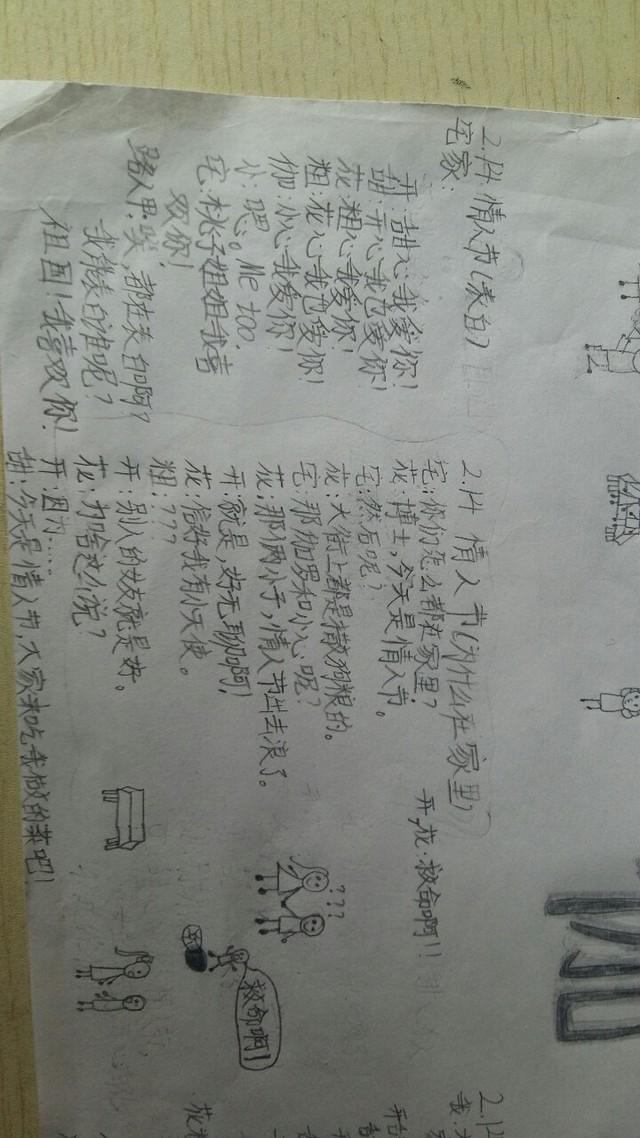 2.14 情人节(表白)
宅家:
开:甜心我爱你!
甜:开心我也爱你!
花:粗心我爱你!
粗:花心我也爱你!
伽:小心我爱你!
小:嗯。Me too.
宅:桃子姐姐我喜
欢你!
路人甲:唉,都在表白啊?
我能表白谁呢?
祖国!我喜欢你!
2.14 情人节(为什么在家里)
宅:你们怎么都在家里?
花:博士,今天是情人节。
宅:然后呢?
花:大街上都是撒狗粮的。
宅:那伽罗和小心呢?
花:那俩小子,情人节出去浪了。
开:就是,好无聊啊!
花:信好我有小天使。
粗:???
开:别人的女友就是好。
花:打啥这小说?
开:因为……
甜:今天是情人节,大家来吃我做的菜吧!
开,花:救命啊!!
???
救命啊!
2.1
我: